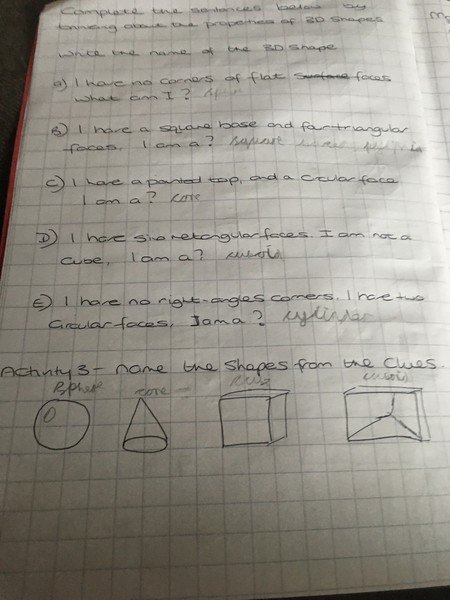 Complete the sentences below by
thinking about the properties of 3D shapes
Write the name of the 3D shape
a) I have no corners of flat surface faces
What am I?
B) I have a square base and four triangular
faces. I am a? square
C) I have a pointed top, and a circular face
I am a? cone
D) I have six rectangular faces. I am not a
cube, I am a? cuboid
E) I have no right-angles corners. I have two
Circular faces, I am a? cylinder
Activity 3 - name the shapes from the clues.
Sphere cone cube cuboid